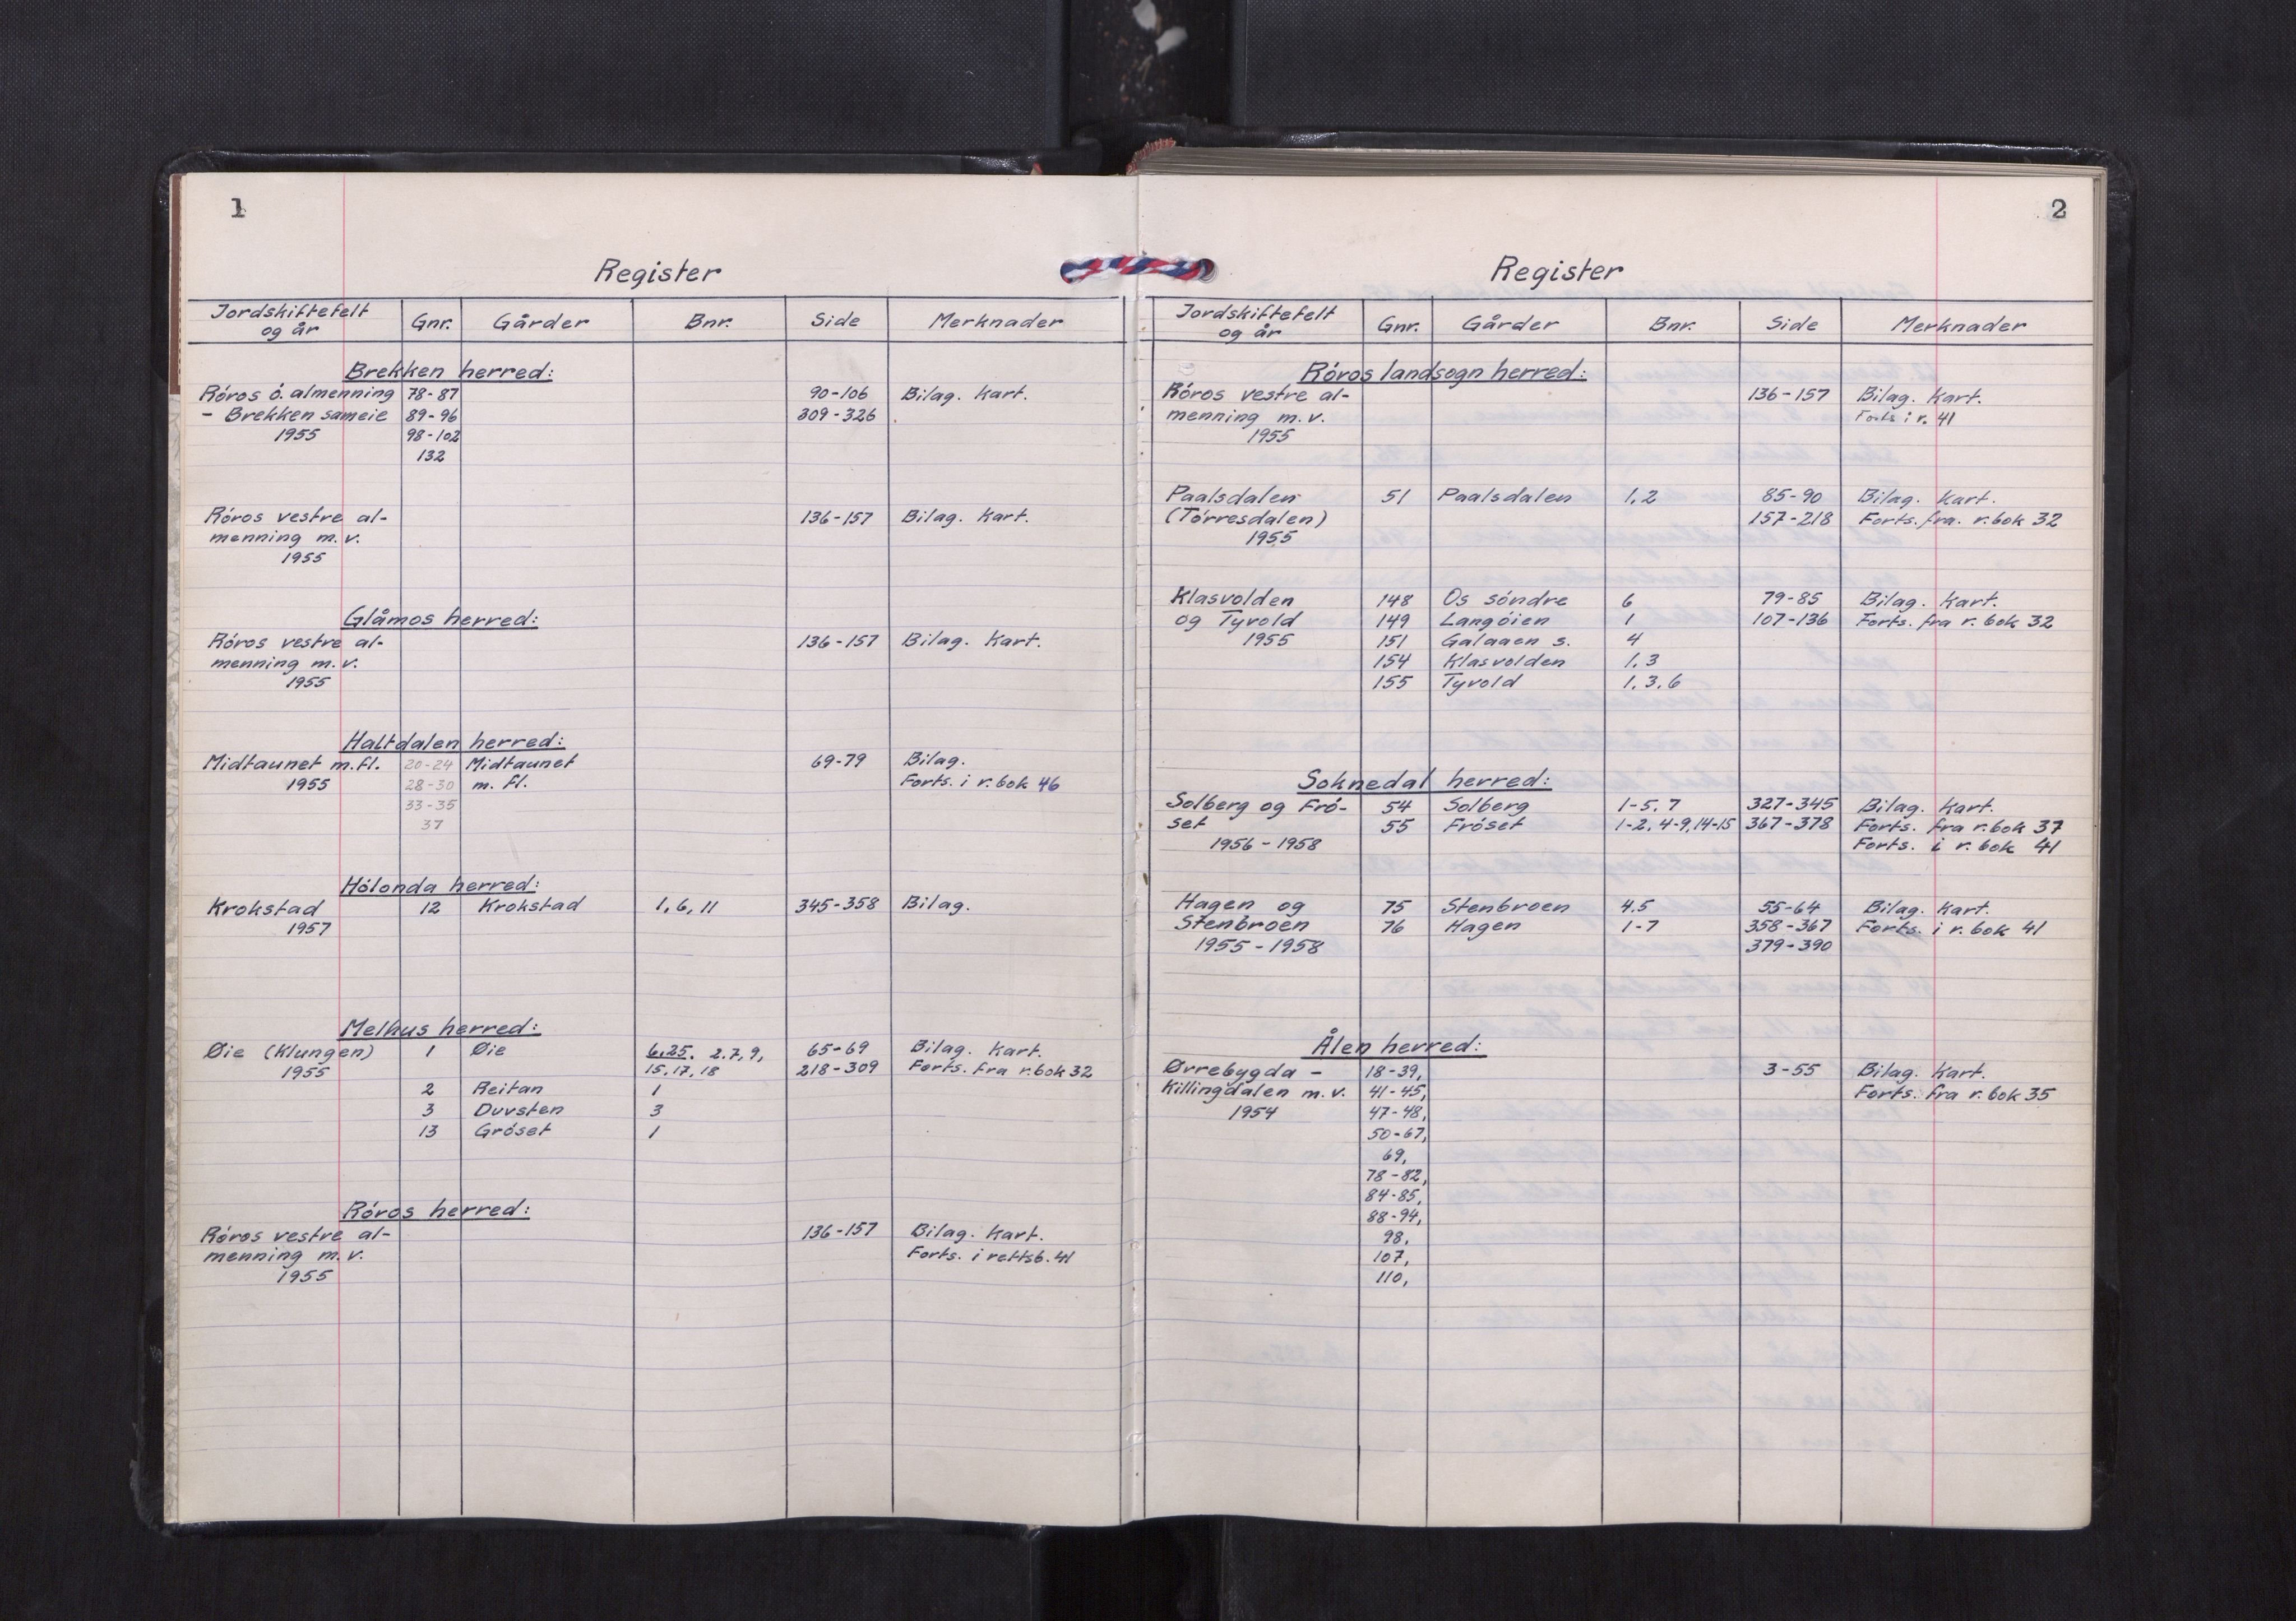 1
Register
Jordskiftefelt og år | Gnr. | Gårder | Bnr. | Side | Merknader
Brekken herred:
Róros ó. almenning 78-87 90-106 Bilag. Kart.
- Brekken sameie 89-96 309-326
1955 98-102
132
Róros vestre al- 136-157 Bilag. Kart.
menning m.v.
1955
Glåmos herred:
Róros vestre al- 136-157 Bilag. Kart.
menning m.v.
1955
Haltdalen herred:
Midtaunet m.fl. 20-24 Midtaunet 69-79 Bilag.
1955 28-30 m. fl. Forts. i r.bok 46
33-35
37
Hólonda herred:
Krokstad 12 Krokstad 1, 6, 11 345-358 Bilag.
1957
Melhus herred:
Øie (Klungen) 1 Øie 6,25. 2.7,9, 65-69 Bilag. Kart.
1955 15,17,18 218-309 Forts. fra r.bok 32
2 Reitan 1
3 Duvsten 3
13 Gróset 1
Róros herred:
Róros vestre al- 136-157 Bilag. Kart.
menning m.v. Forts. i rettsb. 41
1955
2
Register
Jordskiftefelt og år | Gnr. | Gårder | Bnr. | Side | Merknader
Róros landsogn herred:
Róros vestre al- 136-157 Bilag. Kart.
menning m.v. Forts i r. 41
1955
Paalsdalen 51 Paalsdalen 1,2 85-90 Bilag. Kart.
(Tórresdalen) 157-218 Forts. fra. r.bok 32
1955
Klasvolden 148 Os sóndre 6 79-85 Bilag. Kart.
og Tyvold 149 Langóien 1 107-136 Forts. fra r.bok 32
1955 151 Galaaen s. 4
154 Klasvolden 1,3
155 Tyvold 1,3,6
Soknedal herred:
Solberg og Fró- 54 Solberg 1-5,7 327-345 Bilag. Kart.
set 55 Fróset 1-2, 4-9,14-15 367-378 Forts. fra r.bok 37
1956-1958 Forts. i r.bok 41
Hagen og 75 Stenbroen 4.5 55-64 Bilag. Kart.
Stenbroen 76 Hagen 1-7 358-367 Forts. i r.bok 41
1955-1958 379-390
Ålen herred:
Øvrebygda - 18-39, 3-55 Bilag. Kart.
Killingdalen m.v. 41-45, Forts. fra r.bok 35
1954 47-48,
50-67,
69,
78-82,
84-85,
88-94,
98,
107,
110,